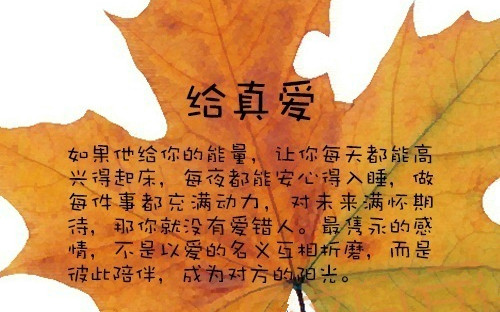 给真爱
如果他给你的能量，让你每天都能高
兴得起床，每夜都能安心得入睡，做
每件事都充满动力，对未来满怀期
待，那你就没有爱错人。最隽永的感
情，不是以爱的名义互相折磨，而是
彼此陪伴，成为对方的阳光。